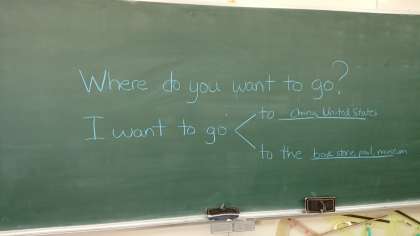 Where do you want to go?
to China, United States
I want to go
to the book store, pool, museum